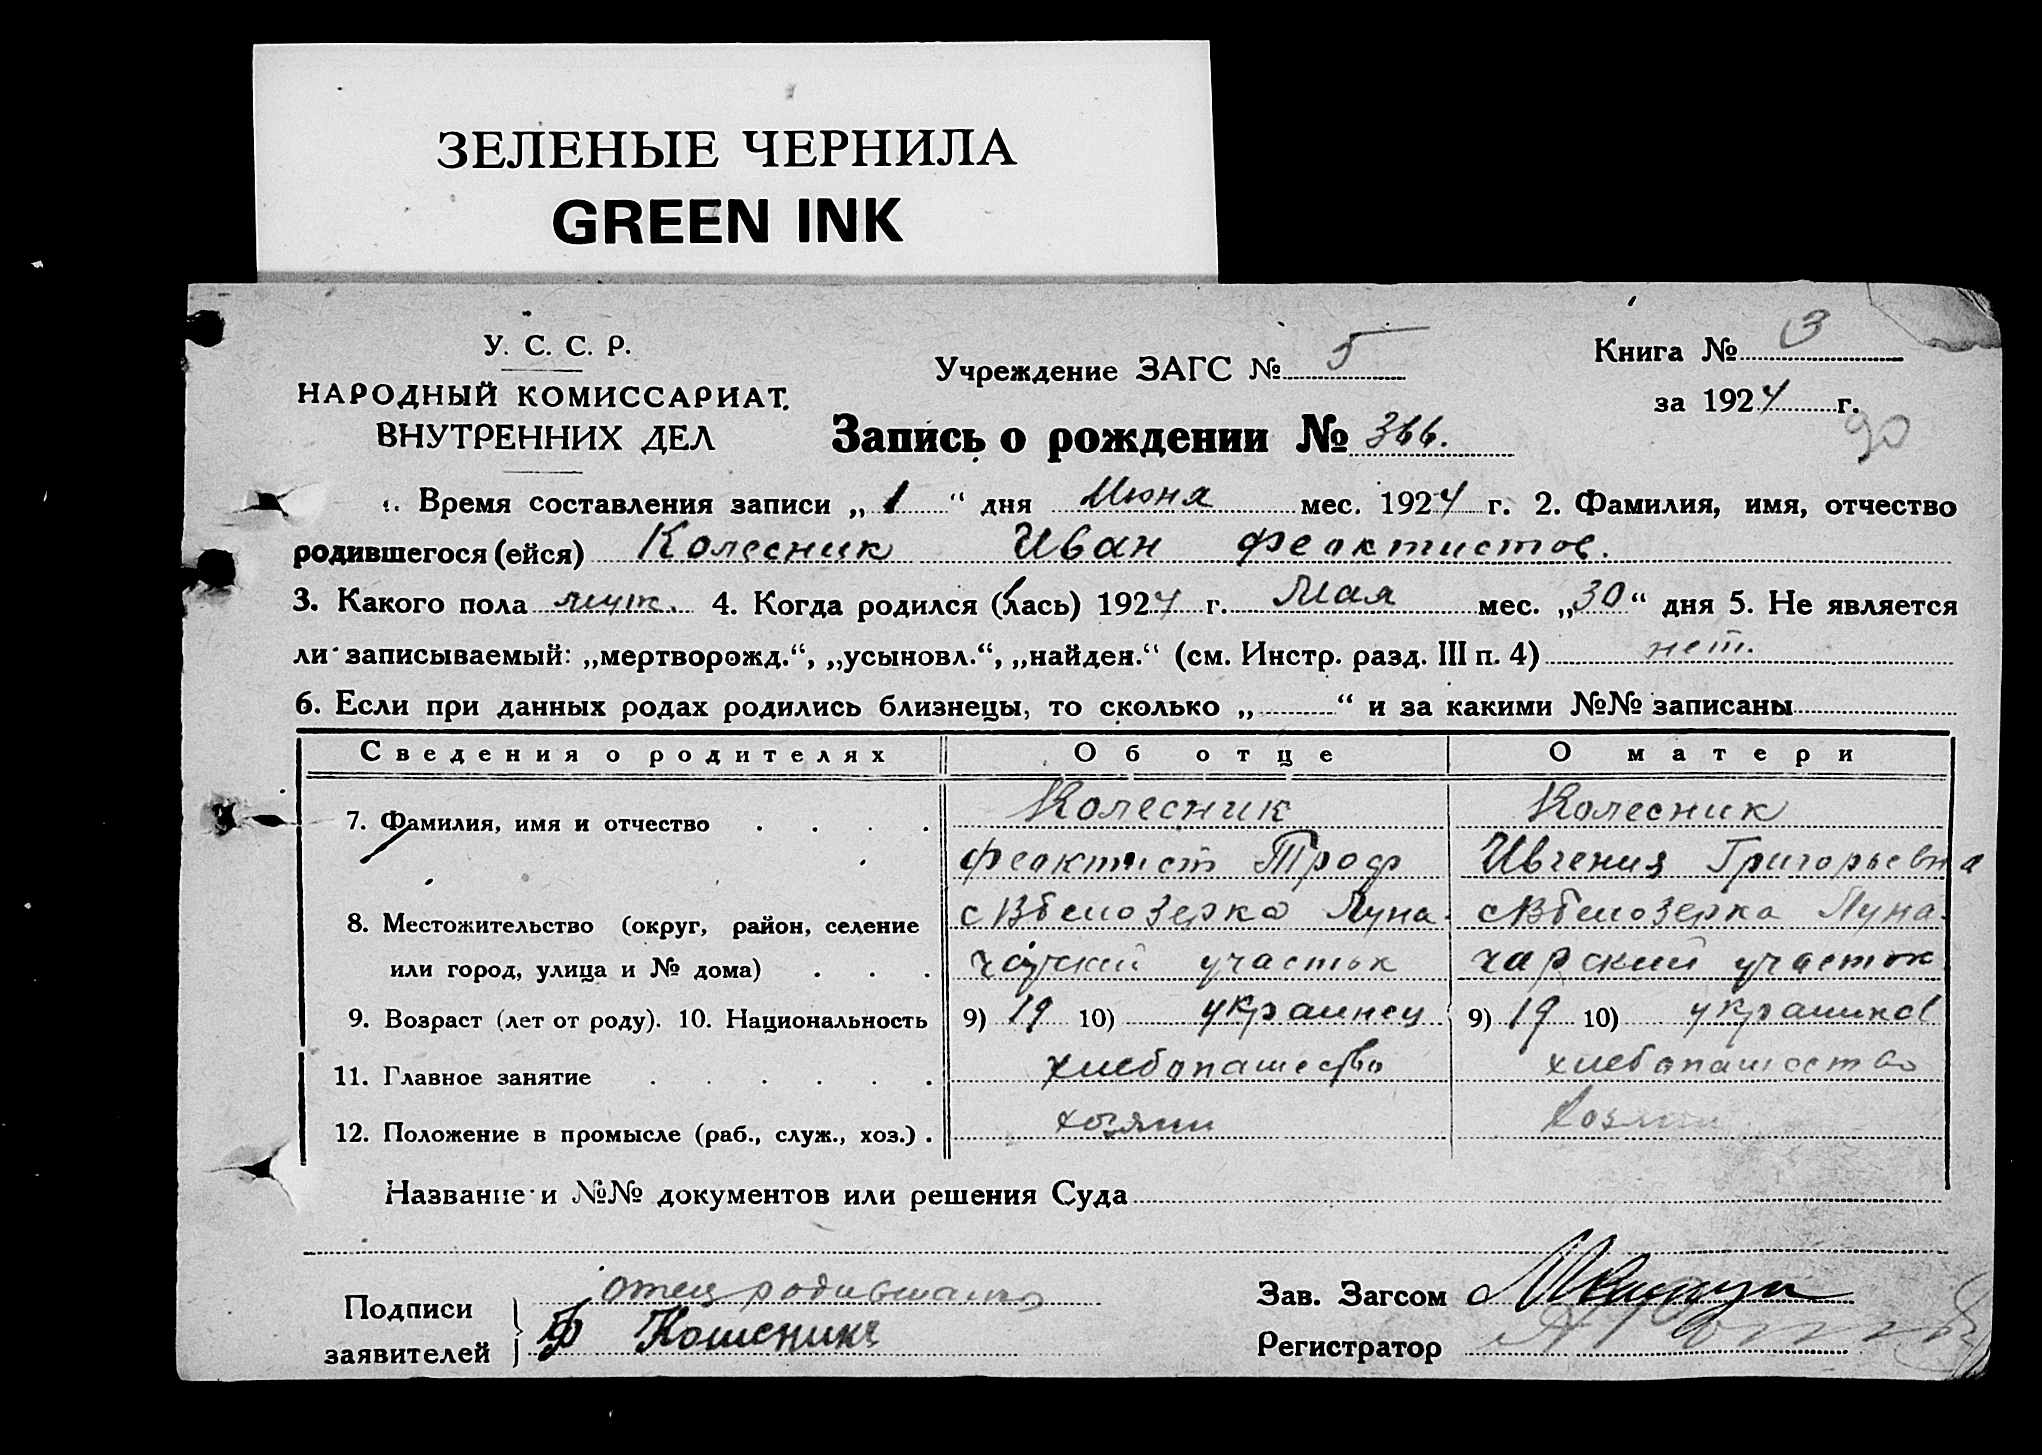 ЗЕЛЕНЫЕ ЧЕРНИЛА
GREEN INK
У. С. С. Р.
НАРОДНЫЙ КОМИССАРИАТ.
ВНУТРЕННИХ ДЕЛ
Учреждение ЗАГС № 5
Книга № 3
за 1924 г.
90
Запись о рождении № 366.
1. Время составления записи „ 1 “ дня Июня мес. 1924 г. 2. Фамилия, имя, отчество
родившегося (ейся) Колесник Иван Феактистов.
3. Какого пола муж. 4. Когда родился (лась) 1924 г. Мая мес. „30“ дня 5. Не является
ли записываемый: „мертворожд.“, „усыновл.“, „найден.“ (см. Инстр. разд. III п. 4) нет.
6. Если при данных родах родились близнецы, то сколько „ “ и за какими №№ записаны
Сведения о родителях Об отце О матери
7. Фамилия, имя и отчество Колесник Колесник
Феактист Троф Ивгения Григорьевна
8. Местожительство (округ, район, селение с Вбелозерка Луна- с Вбелозерка Луна-
или город, улица и № дома) чарский участок чарский участок
9. Возраст (лет от роду). 10. Национальность 9) 19 10) украинец 9) 19 10) украинка
11. Главное занятие хлебопашество хлебопашество
12. Положение в промысле (раб., служ., хоз.) хозяин хозяин
Название и №№ документов или решения Суда
Подписи отец родившаго
заявителей Ф Колесник
Зав. Загсом
Регистратор